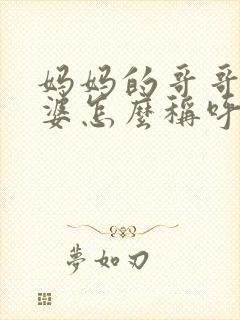 妈妈的哥哥
婆怎麼稱呼
夢如刃